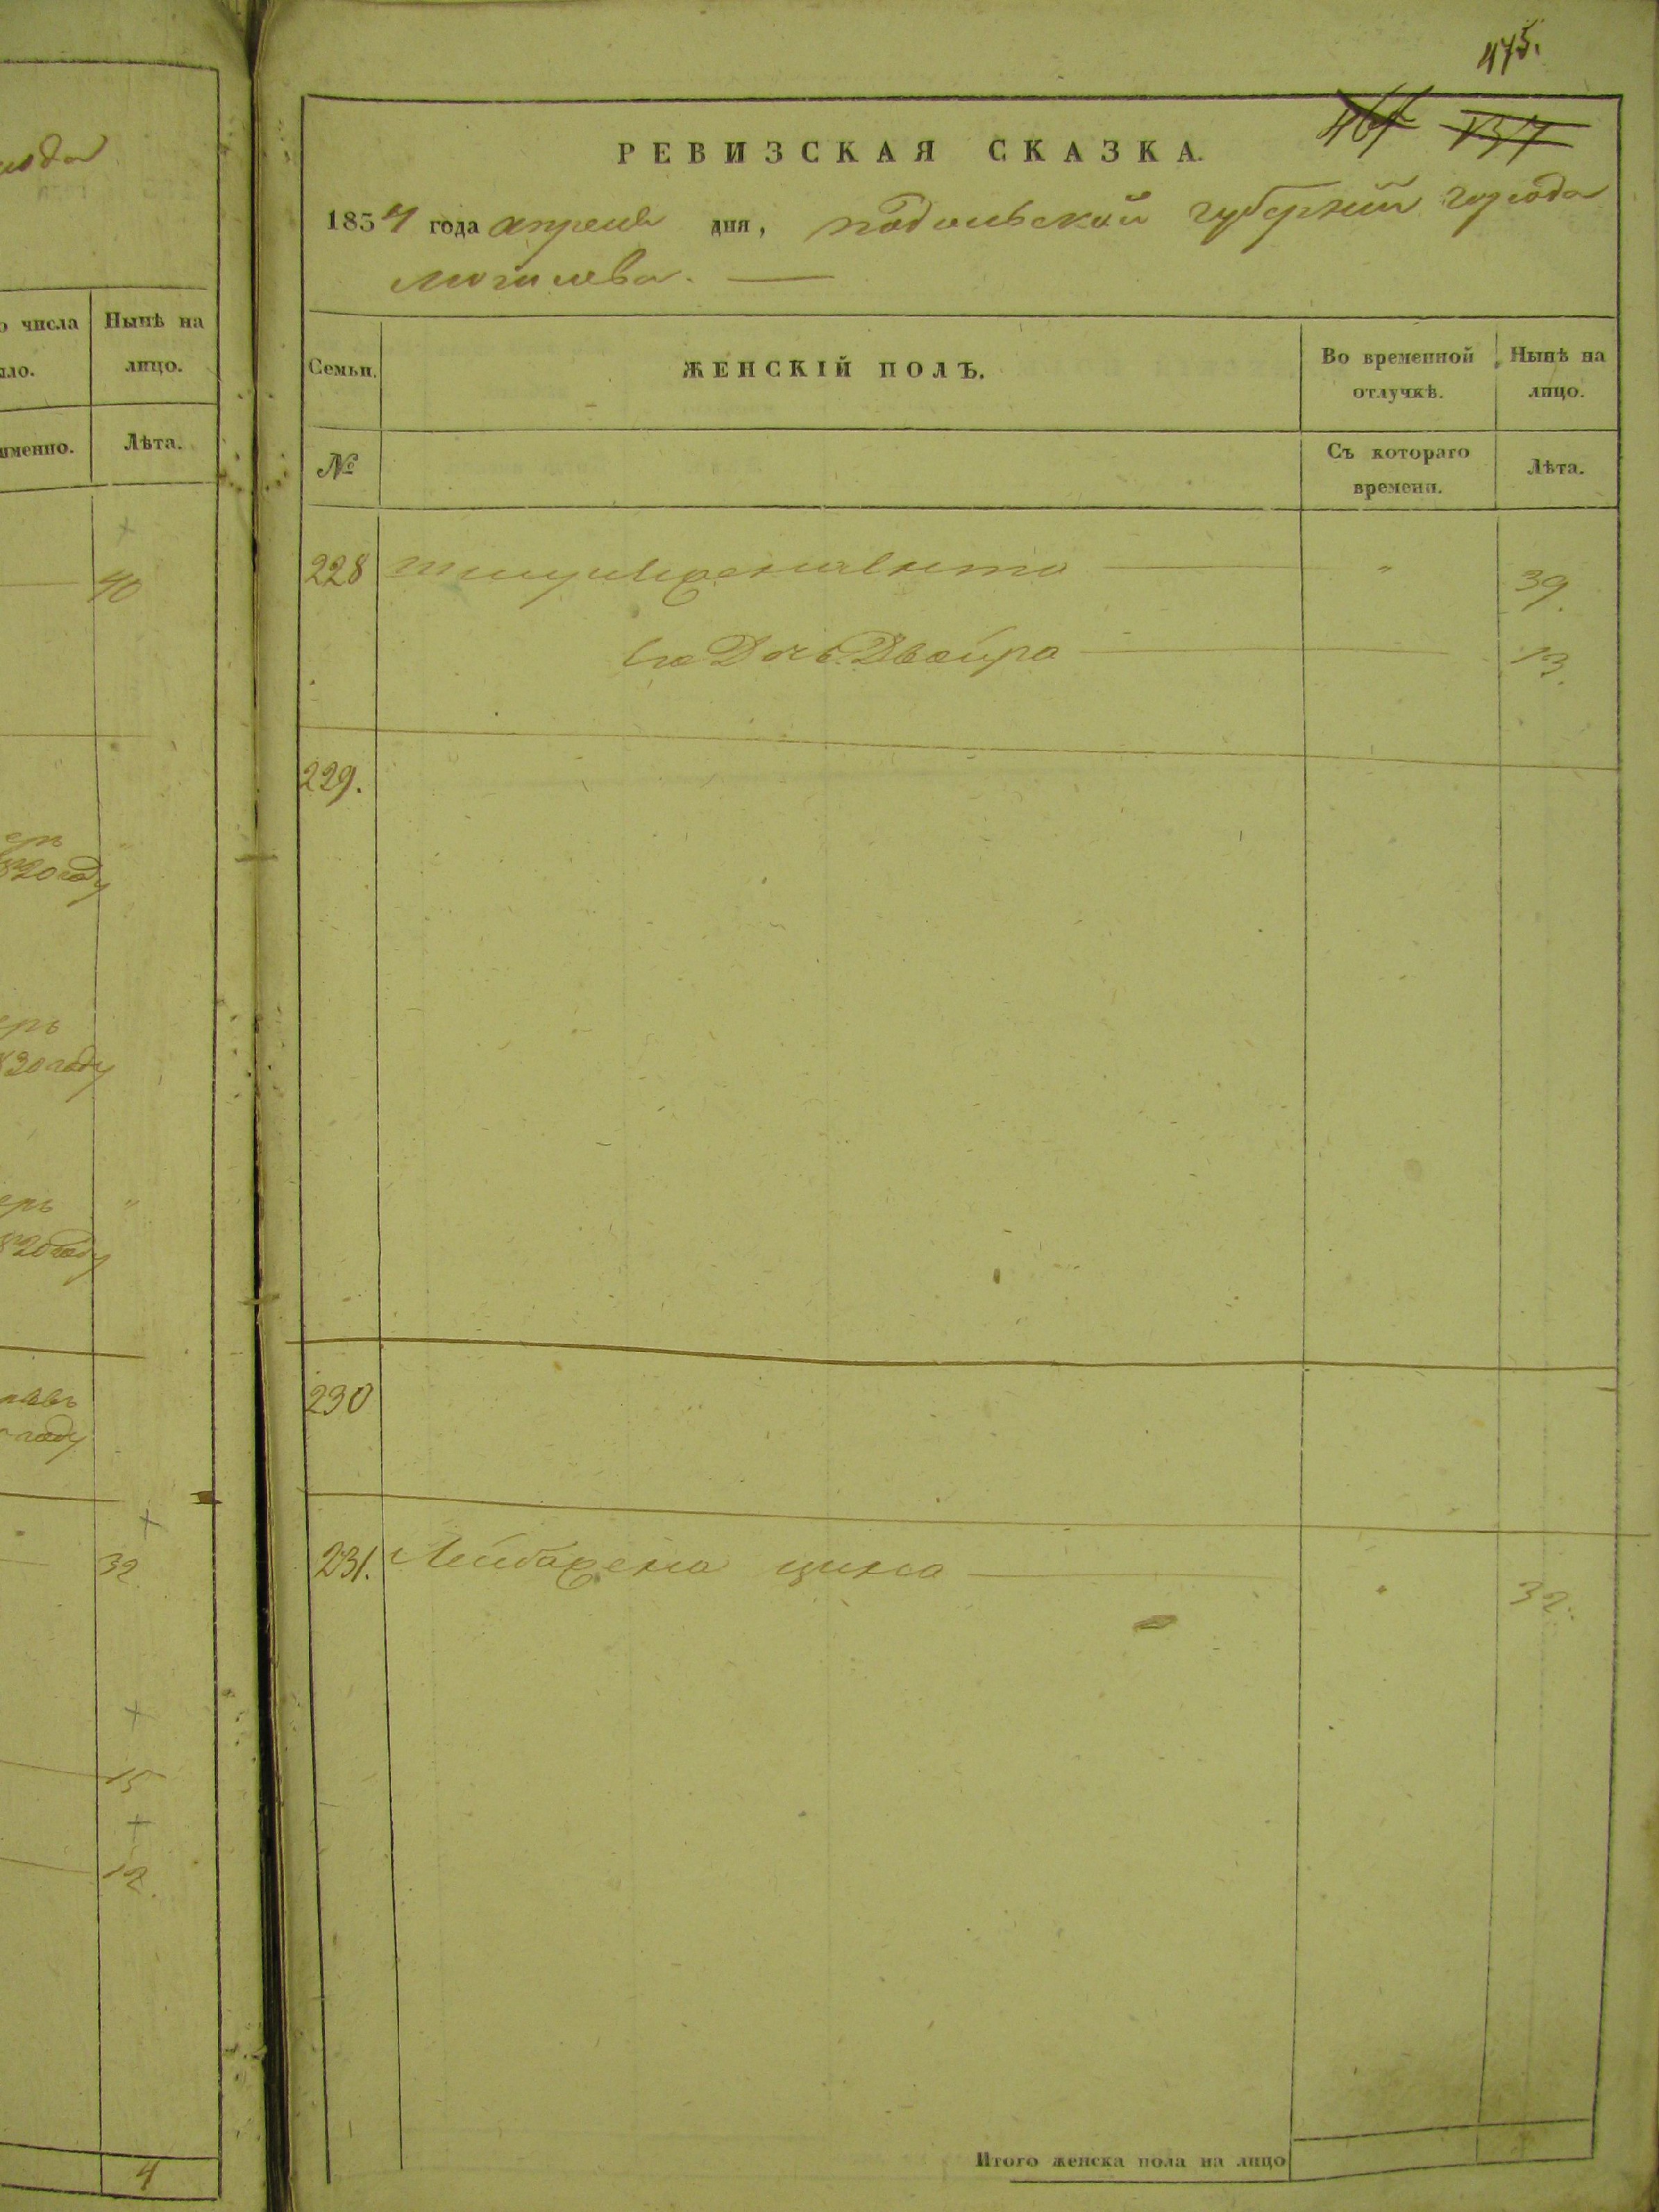 юда
о числа
Нынѣ на
ло.
лицо.
именно.
Лѣта.
40
1820 году
ерь
1830 году
ерь
1820 году
году
32
15
12.
4
475.
РЕВИЗСКАЯ СКАЗКА.
1834 года апреля дня, Подольской губернии города
Могилева.
Семьи.
ЖЕНСКІЙ ПОЛЪ.
Во временной
отлучкѣ.
Нынѣ на
лицо.
№
Съ котораго
времени.
Лѣта.
228 жена " 39.
Ея Дочь Двойра 13.
229.
230
231. Лейбы жена Цина " 32.
Итого женска пола на лицо